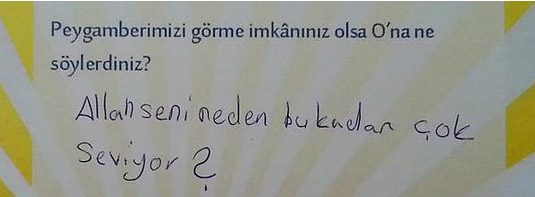 Peygamberimizi görme imkânınız olsa O'na ne
söylerdiniz?
Allah seni neden bu kadar çok
Seviyor ?